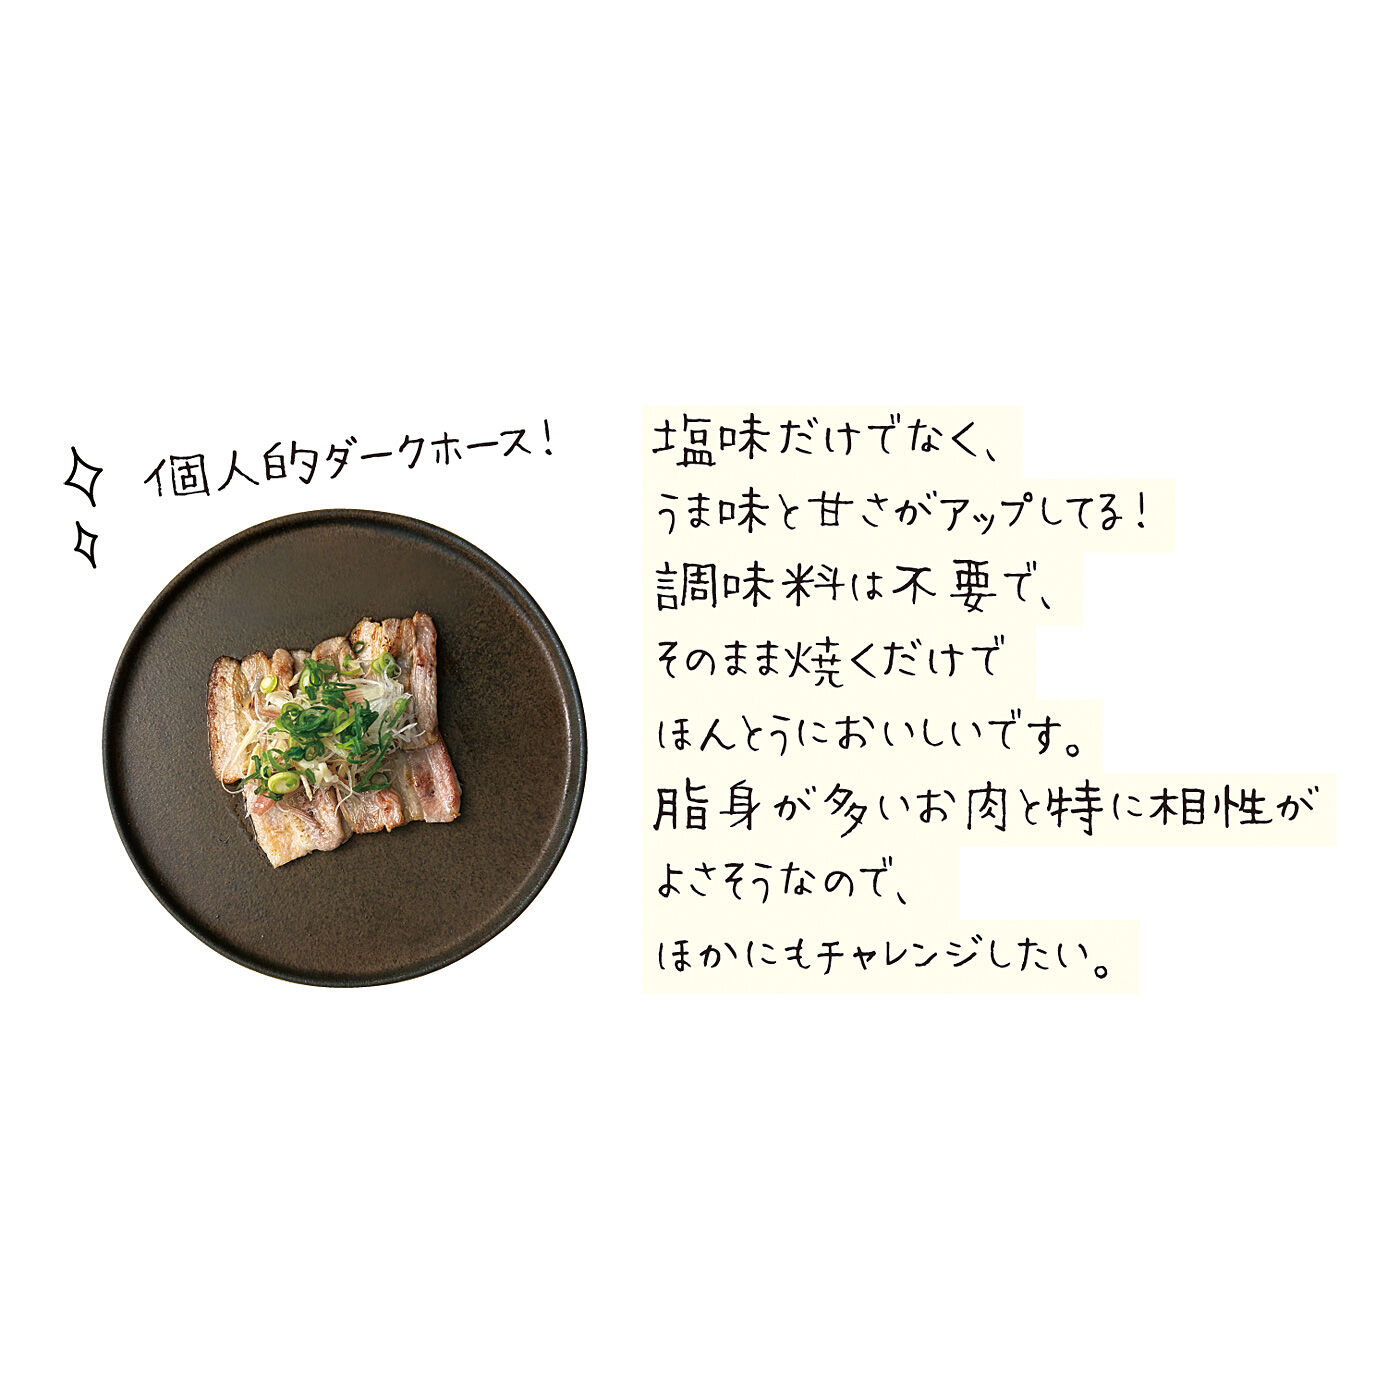 個人的ダークホース！
塩味だけでなく、
うま味と甘さがアップしてる！
調味料は不要で、
そのまま焼くだけで
ほんとうにおいしいです。
脂身が多いお肉と特に相性が
よさそうなので、
ほかにもチャレンジしたい。